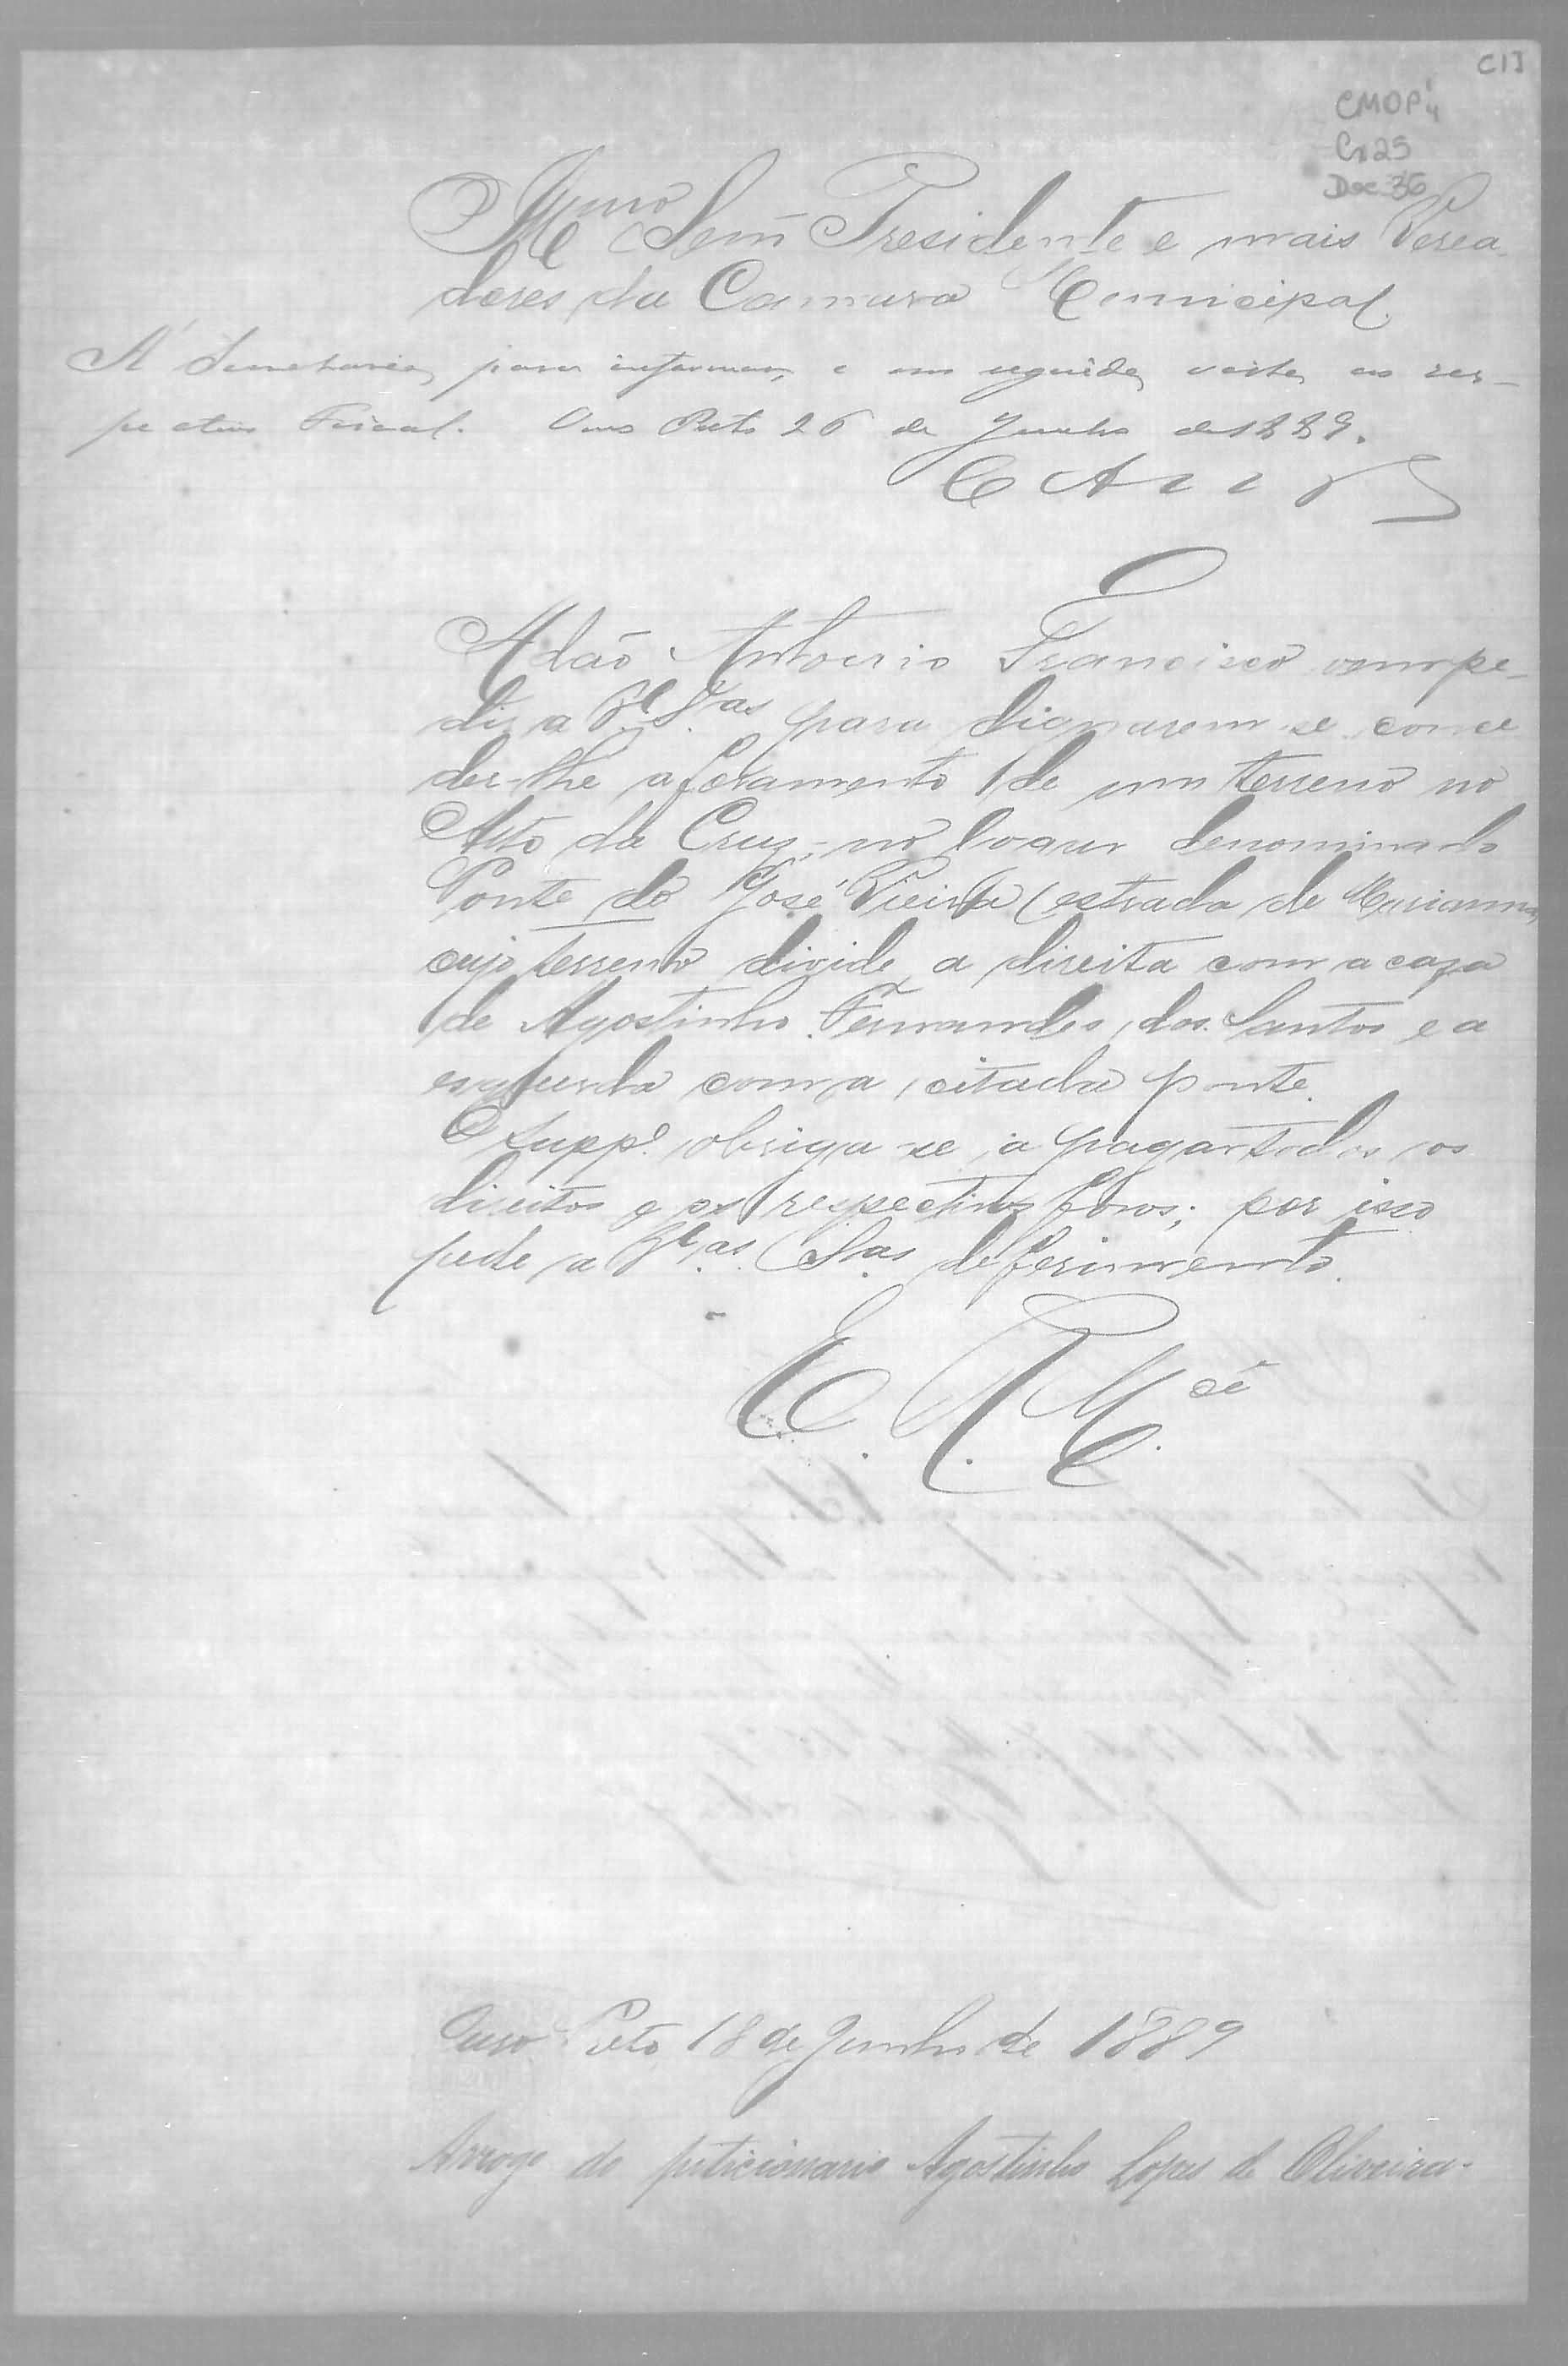 C13
CMOP
Cx 25
Doc 36
Illmo Senr Presidente e mais Verea-
dores da Camara Municipal.
A' Secretaria, para informar, e em seguida, vista ao res-
pectivo Fiscal. Ouro Preto 26 de Junho de 1889.
Adão Antonio Francisco vem pe-
dir a V.as S.as para dignarem-se conce
der-lhe aforamento de um terreno no
Alto da Cruz, no logar denominado
Ponte do José Vieira (estrada de Marianna,
cujo terreno divide, a direita com a caza
de Agostinho Fernandes dos Santos e a
esquerda com a citada ponte.
O Supp.e obriga-se a pagar todos os
direitos e os respectivos foros; por isso
pede a V.as S.as deferimento.
E. R. M.cê
Ouro Preto 18 de Junho de 1889
Arrogo do peticionario Agostinho Lopes de Oliveira.